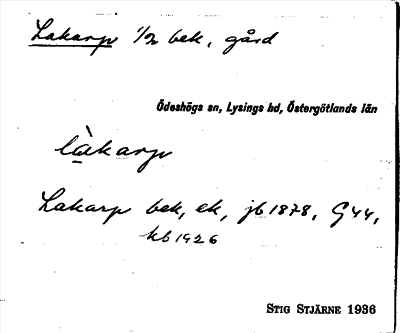 Lakarp 1/2 bek, gård
Ödeshögs sn, Lysings hd, Östergötlands län
làkarp
Lakarp bek, ek, jb 1878, G44,
kb 1926
STIG STJÄRNE 1936